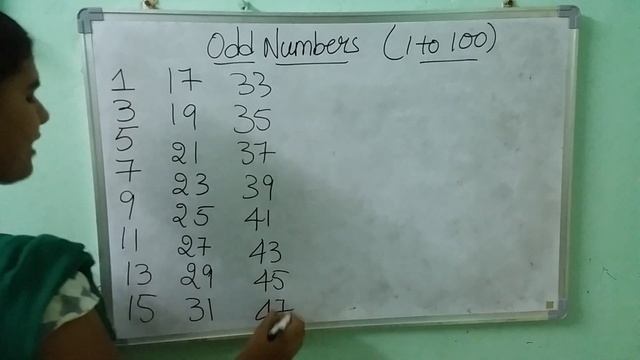 Odd Numbers (1 to 100)
1 17 33
3 19 35
5 21 37
7 23 39
9 25 41
11 27 43
13 29 45
15 31 47